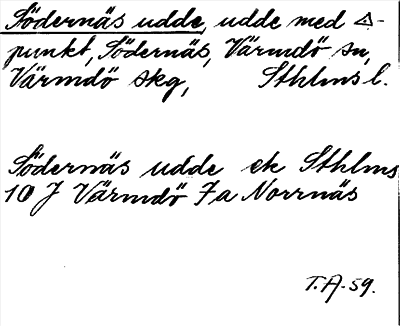 Södernäs udde, udde med △-
punkt, Södernäs, Värmdö sn,
Värmdö skg, Sthlms l.
Södernäs udde ek Sthlms
10 J Värmdö 7a Norrnäs
T.A.-59.